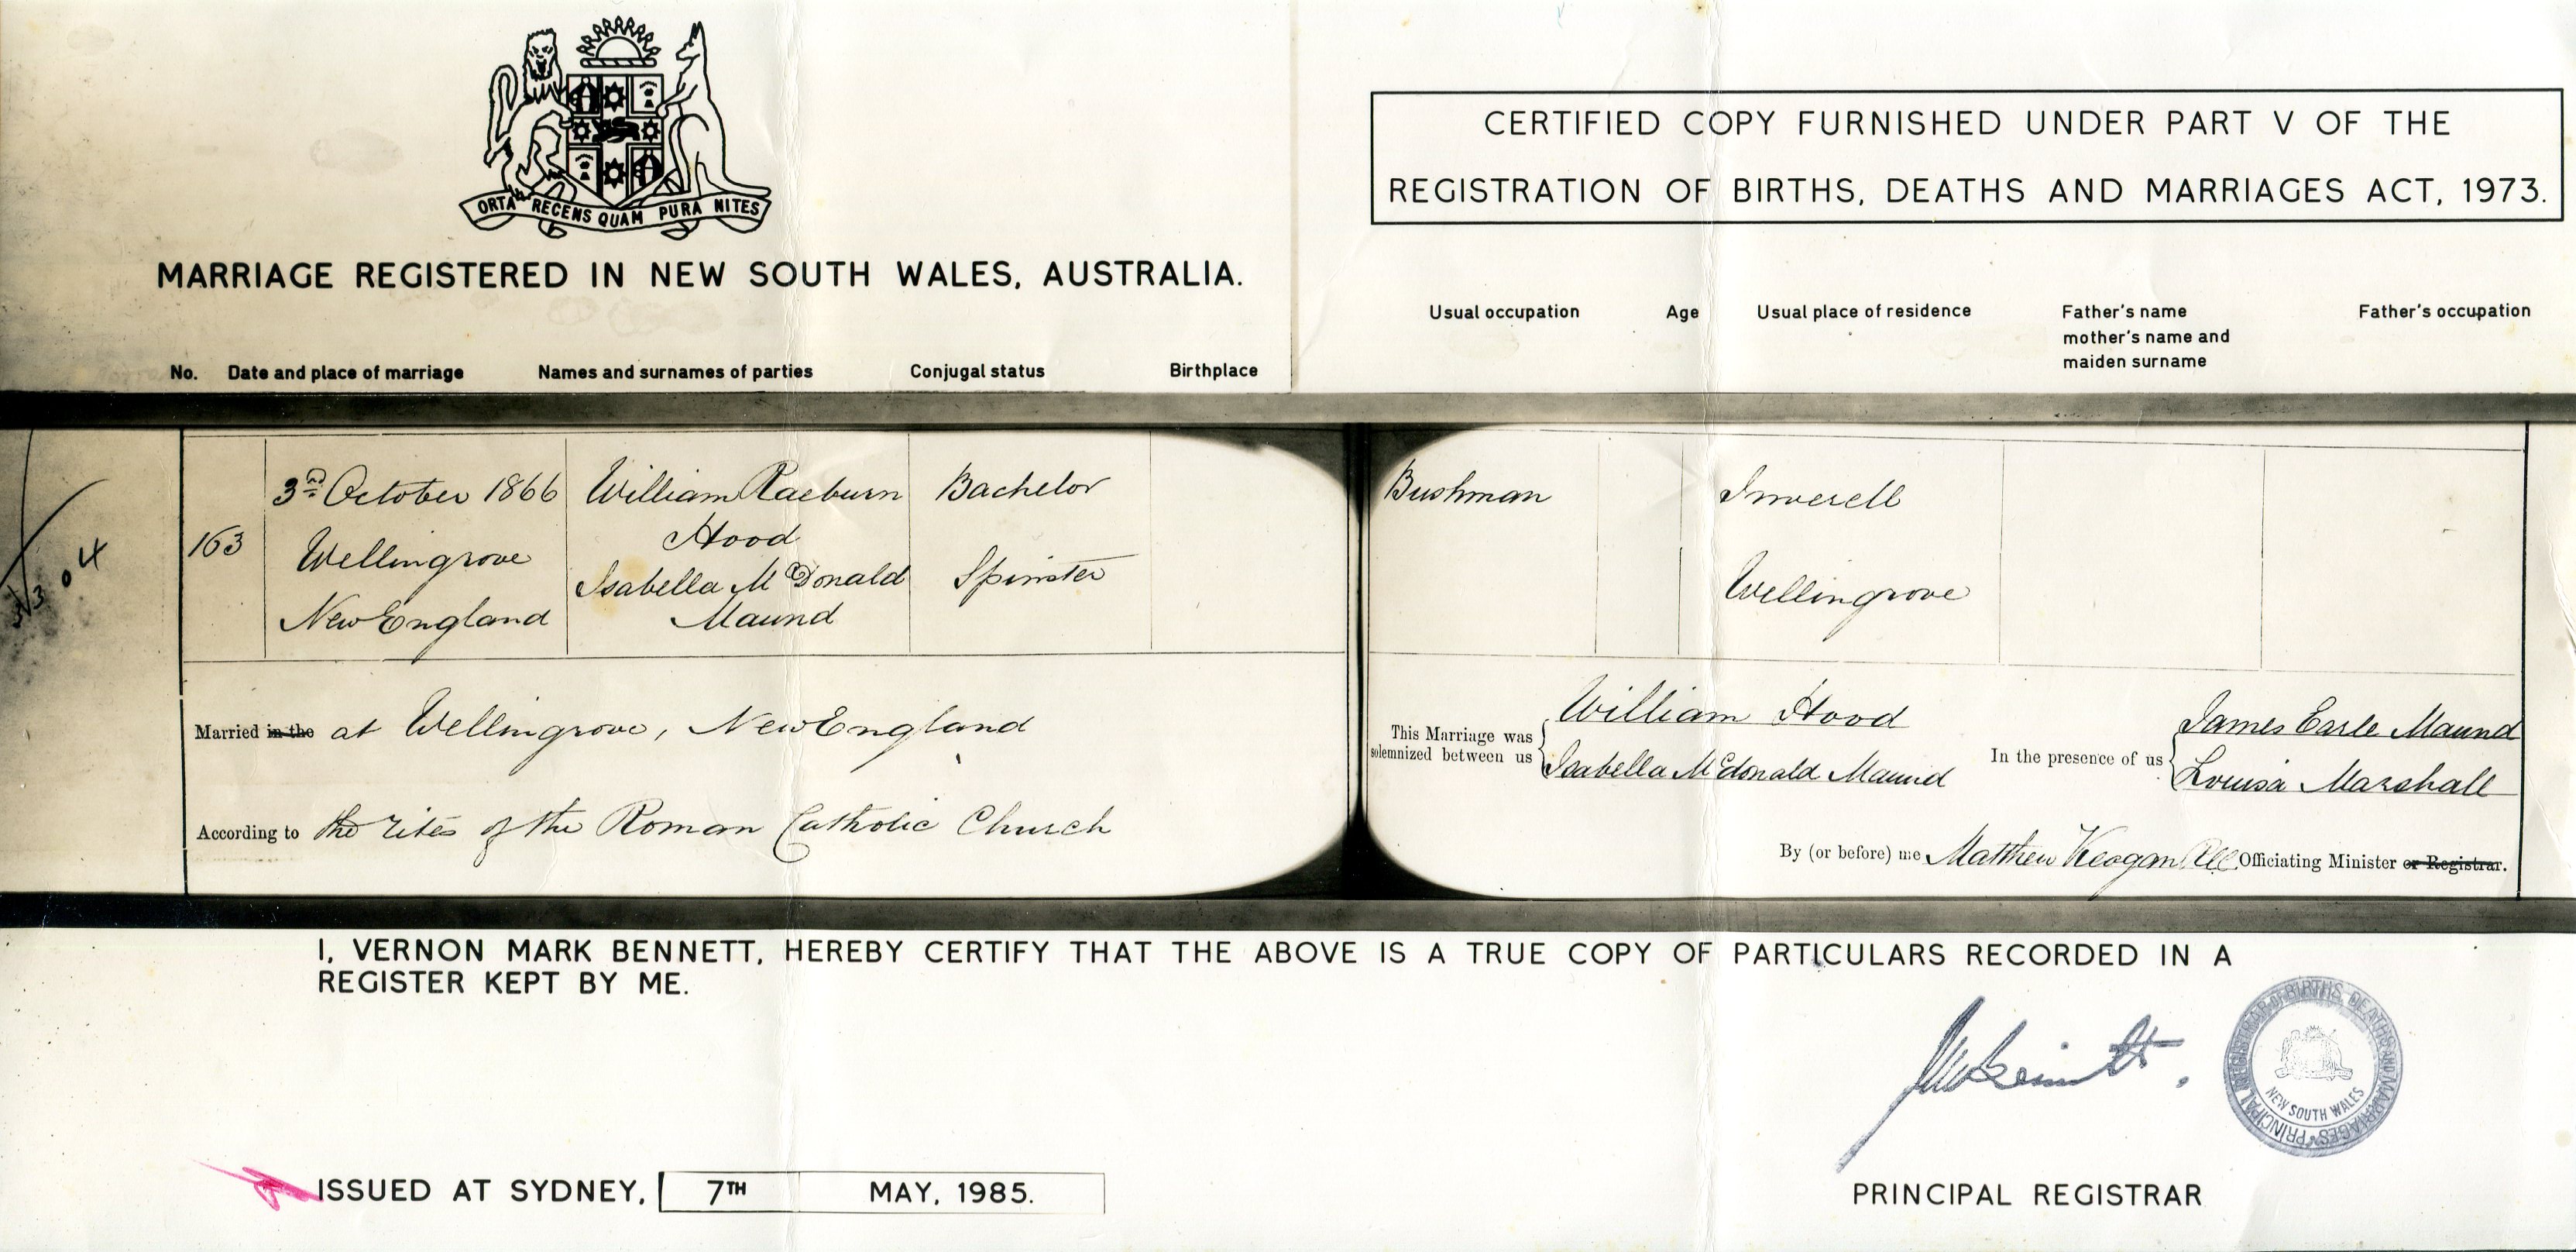 ORTA RECENS QUAM PURA NITES
MARRIAGE REGISTERED IN NEW SOUTH WALES, AUSTRALIA.
CERTIFIED COPY FURNISHED UNDER PART V OF THE
REGISTRATION OF BIRTHS, DEATHS AND MARRIAGES ACT, 1973.
No. Date and place of marriage Names and surnames of parties Conjugal status Birthplace
Usual occupation Age Usual place of residence Father's name Father's occupation
mother's name and
maiden surname
3rd October 1866 William Raeburn Bachelor Bushman Inverell
Hood
163 Wellingrove Isabella McDonald Spinster Wellingrove
New England Maund
04
Married in the at Wellingrove, New England
According to the rites of the Roman Catholic Church
This Marriage was
solemnized between us
William Hood
Isabella Mcdonald Maund
In the presence of us
James Earle Maund
Louisa Marshall
By (or before) me Matthew Keogan Officiating Minister or Registrar.
I, VERNON MARK BENNETT, HEREBY CERTIFY THAT THE ABOVE IS A TRUE COPY OF PARTICULARS RECORDED IN A
REGISTER KEPT BY ME.
PRINCIPAL REGISTRAR OF BIRTHS, DEATHS AND MARRIAGES
NEW SOUTH WALES
ISSUED AT SYDNEY, 7TH MAY, 1985.
PRINCIPAL REGISTRAR